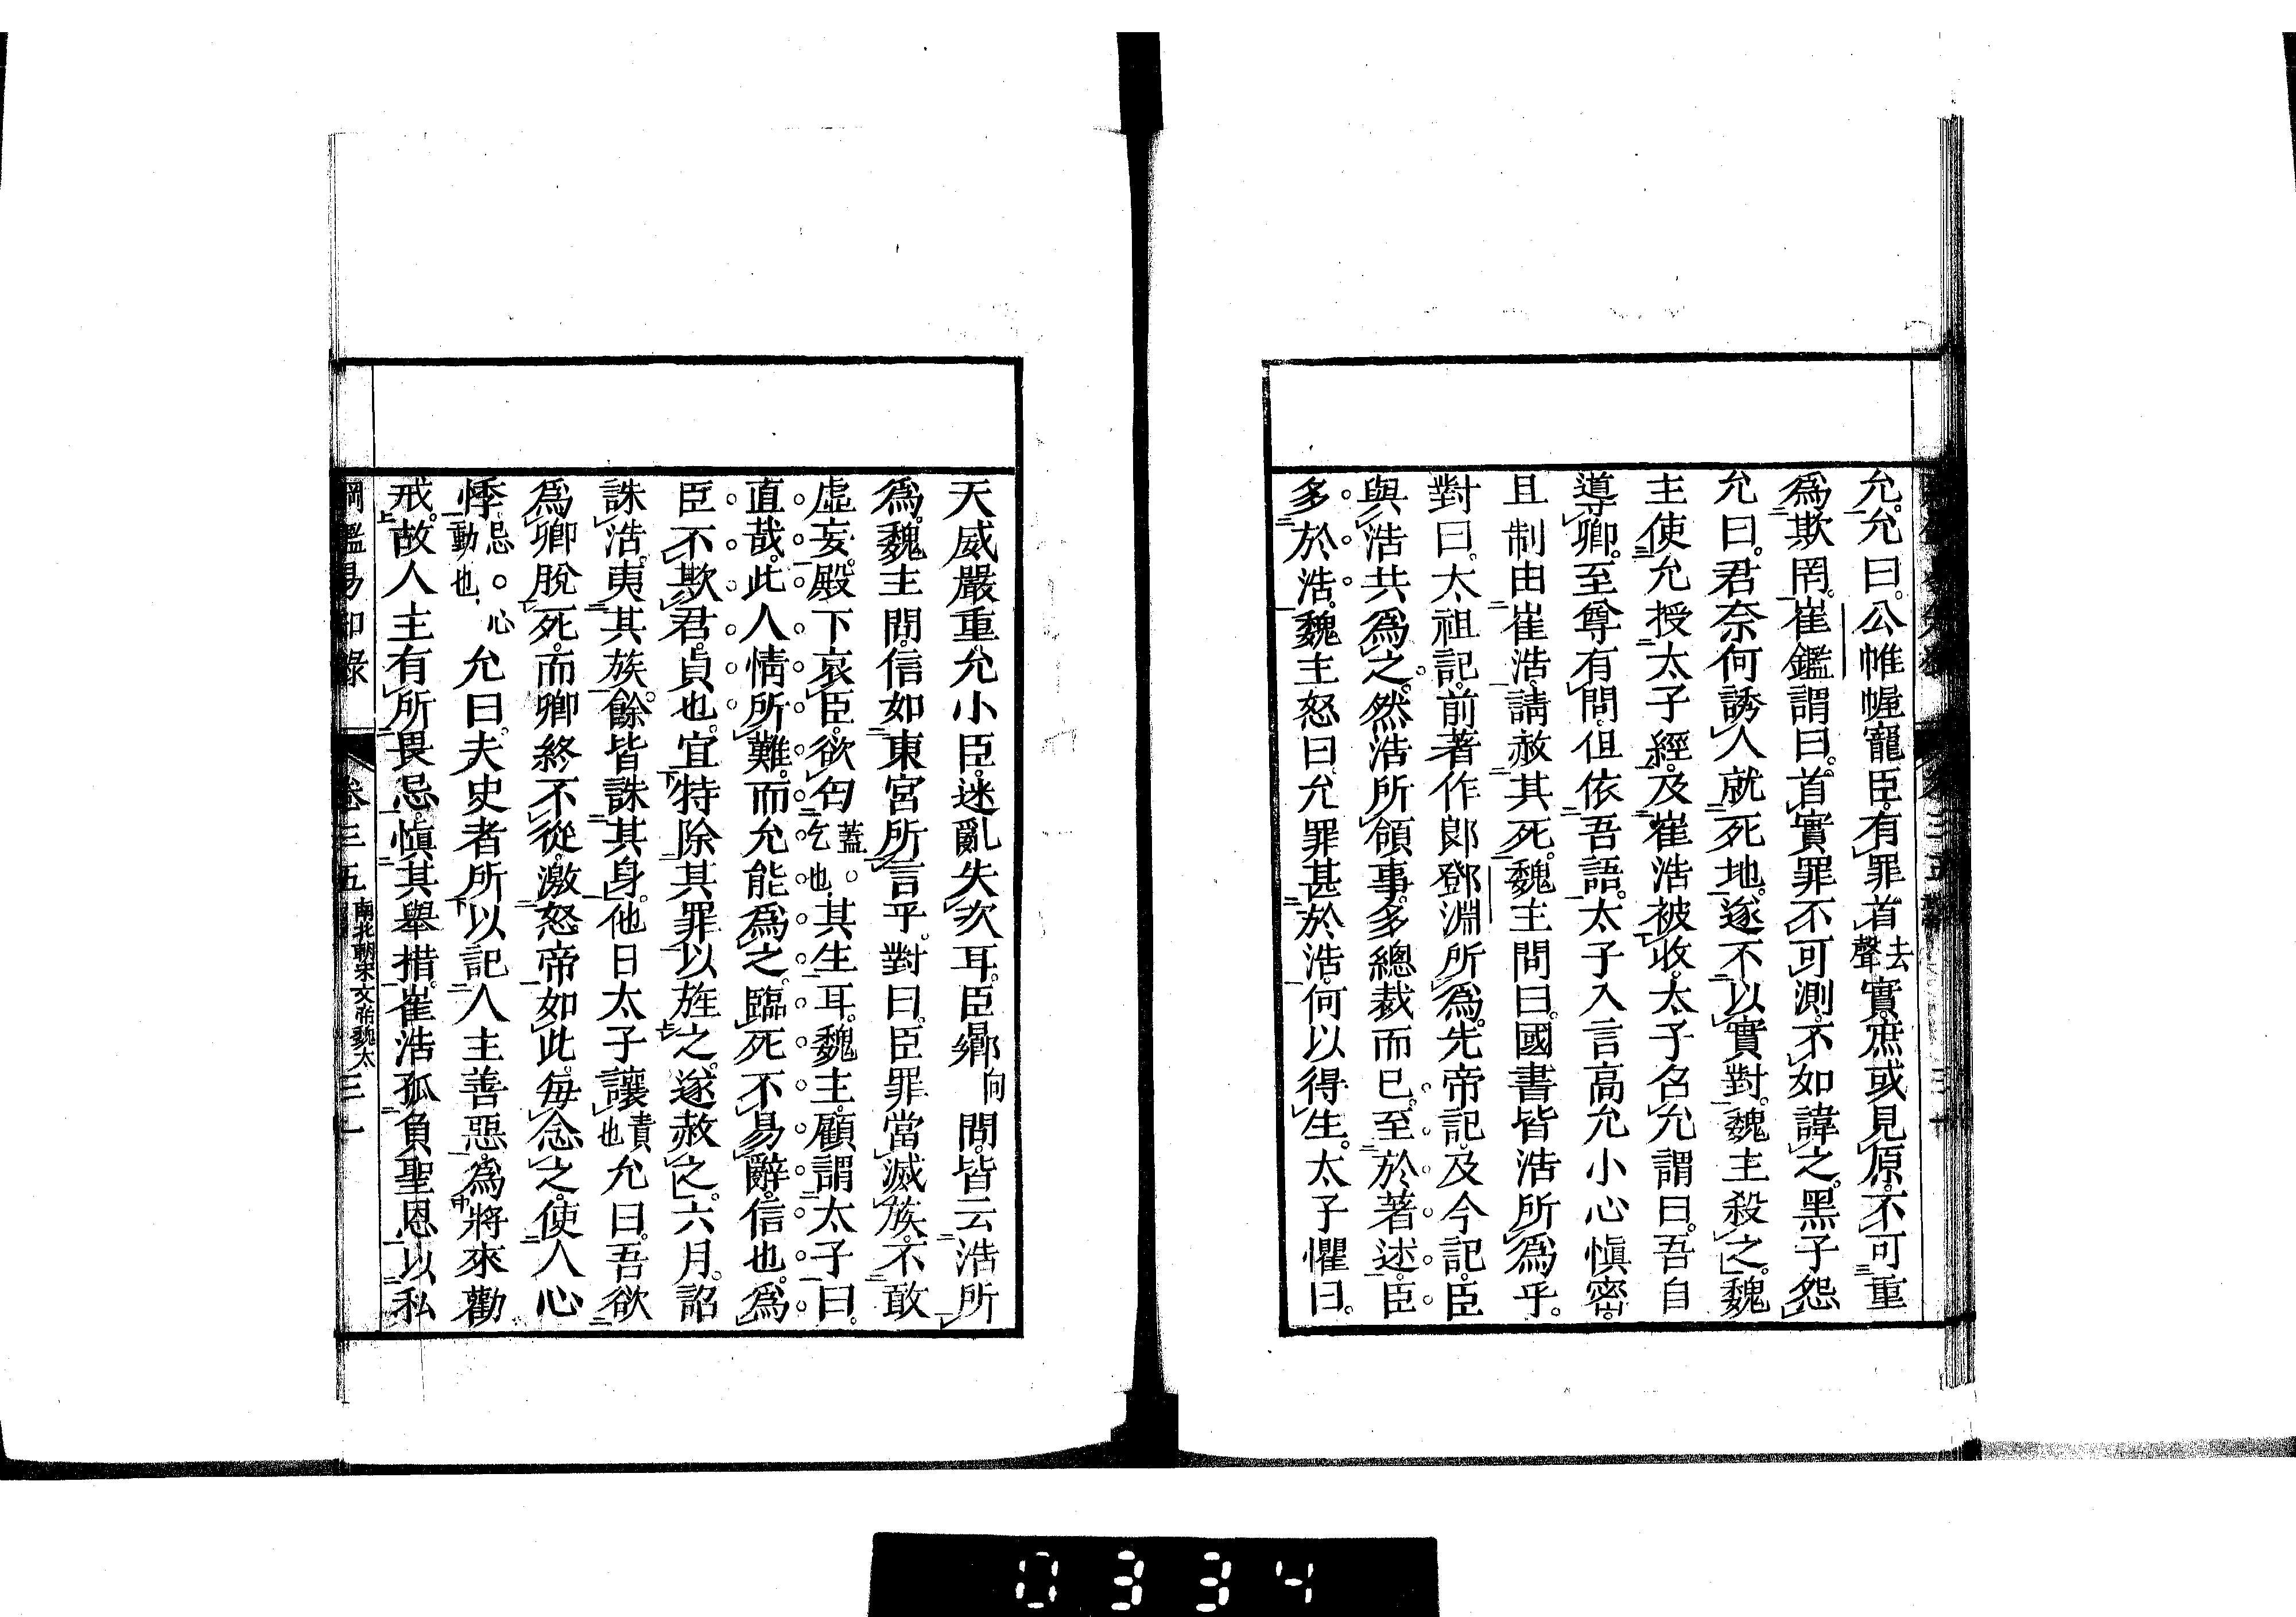 允。允曰。公帷幄寵臣。有罪首去聲實。庶或見原。不可重
爲欺罔。崔鑑謂曰。首實罪不可測。不如諱之。黑子怨
允曰。君奈何誘人就死地。遂不以實對。魏主殺之。魏
主使允授太子經。及崔浩被收。太子召允謂曰。吾自
導卿。至尊有問。但依吾語。太子入言高允小心愼密。
且制由崔浩。請赦其死。魏主問曰。國書皆浩所爲乎。
對曰。太祖記。前著作郎鄧淵所爲。先帝記。及今記。臣
與浩共爲之。然浩所領事。多總裁而已。至於著述。臣
多於浩。魏主怒曰。允罪甚於浩。何以得生。太子懼曰。
天威嚴重。允小臣。迷亂失次耳。臣曏向問。皆云浩所
爲。魏主問。信如東宮所言乎。對曰。臣罪當滅族。不敢
虛妄。殿下哀臣。欲匄蓋。乞也其生耳。魏主顧謂太子曰。
直哉。此人情所難。而允能爲之。臨死不易辭。信也。爲
臣不欺君。貞也。宜特除其罪以旌之。遂赦之。六月。詔
誅浩。夷其族。餘皆誅其身。他日太子讓責也允曰。吾欲
爲卿脫死。而卿終不從。激怒帝如此。每念之。使人心
悸忌。心動也允曰。夫史者所以記人主善惡。爲將來勸
戒。故人主有所畏忌。愼其舉措。崔浩孤負聖恩。以私
綱鑑易知錄 卷三五 南北朝宋文帝魏太 三一
0334